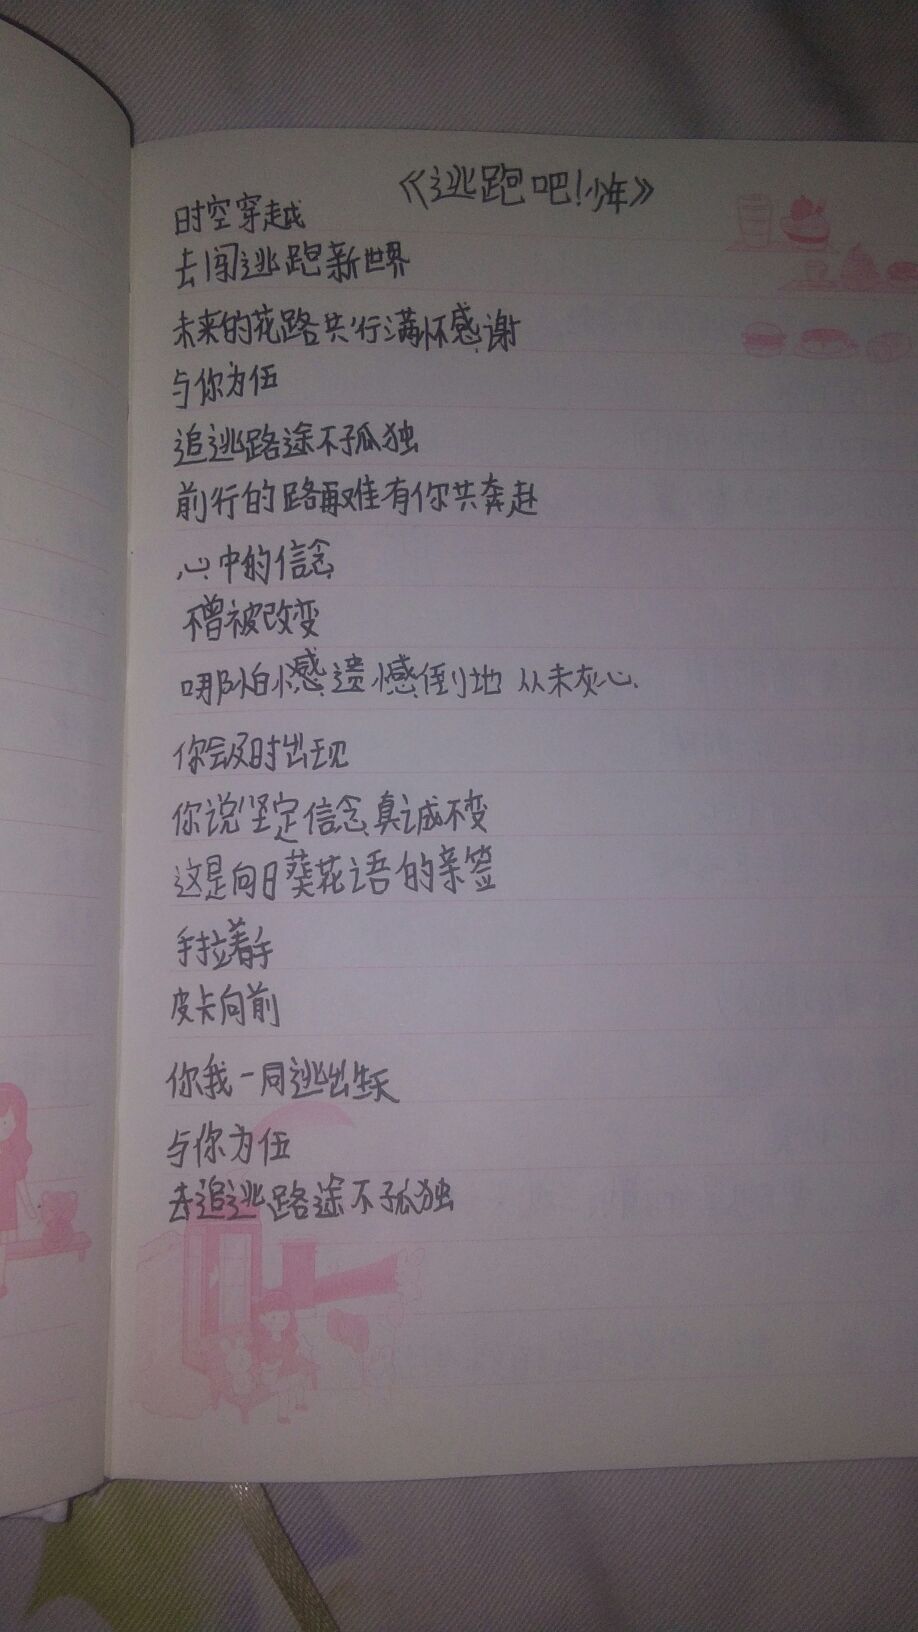 《逃跑吧!少年》
时空穿越
去闯逃跑新世界
未来的花路共行满怀感谢
与你为伍
追逃路途不孤独
前行的路再难有你共奔赴
心中的信念
不曾被改变
哪怕憾遗憾倒地 从未灰心
你会及时出现
你说坚定信念真诚不变
这是向日葵花语的亲签
手拉着手
皮卡向前
你我一同逃出生天
与你为伍
去追逃路途不孤独